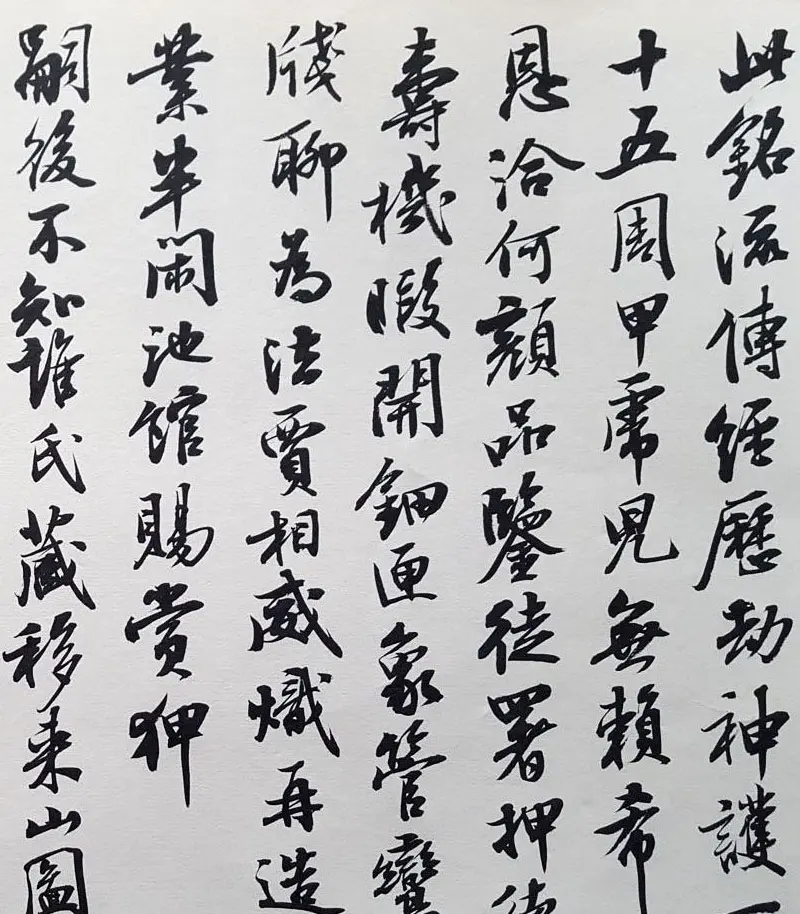 此銘流傳經歷劫神護
十五周甲虎兒無賴希
恩洽何顏品鑒徒署押
壽機暇開鈿匣象管
牋聊為法賈相威熾再造
業半閑池館賜賞狎
嗣後不知誰氏藏移來山圖